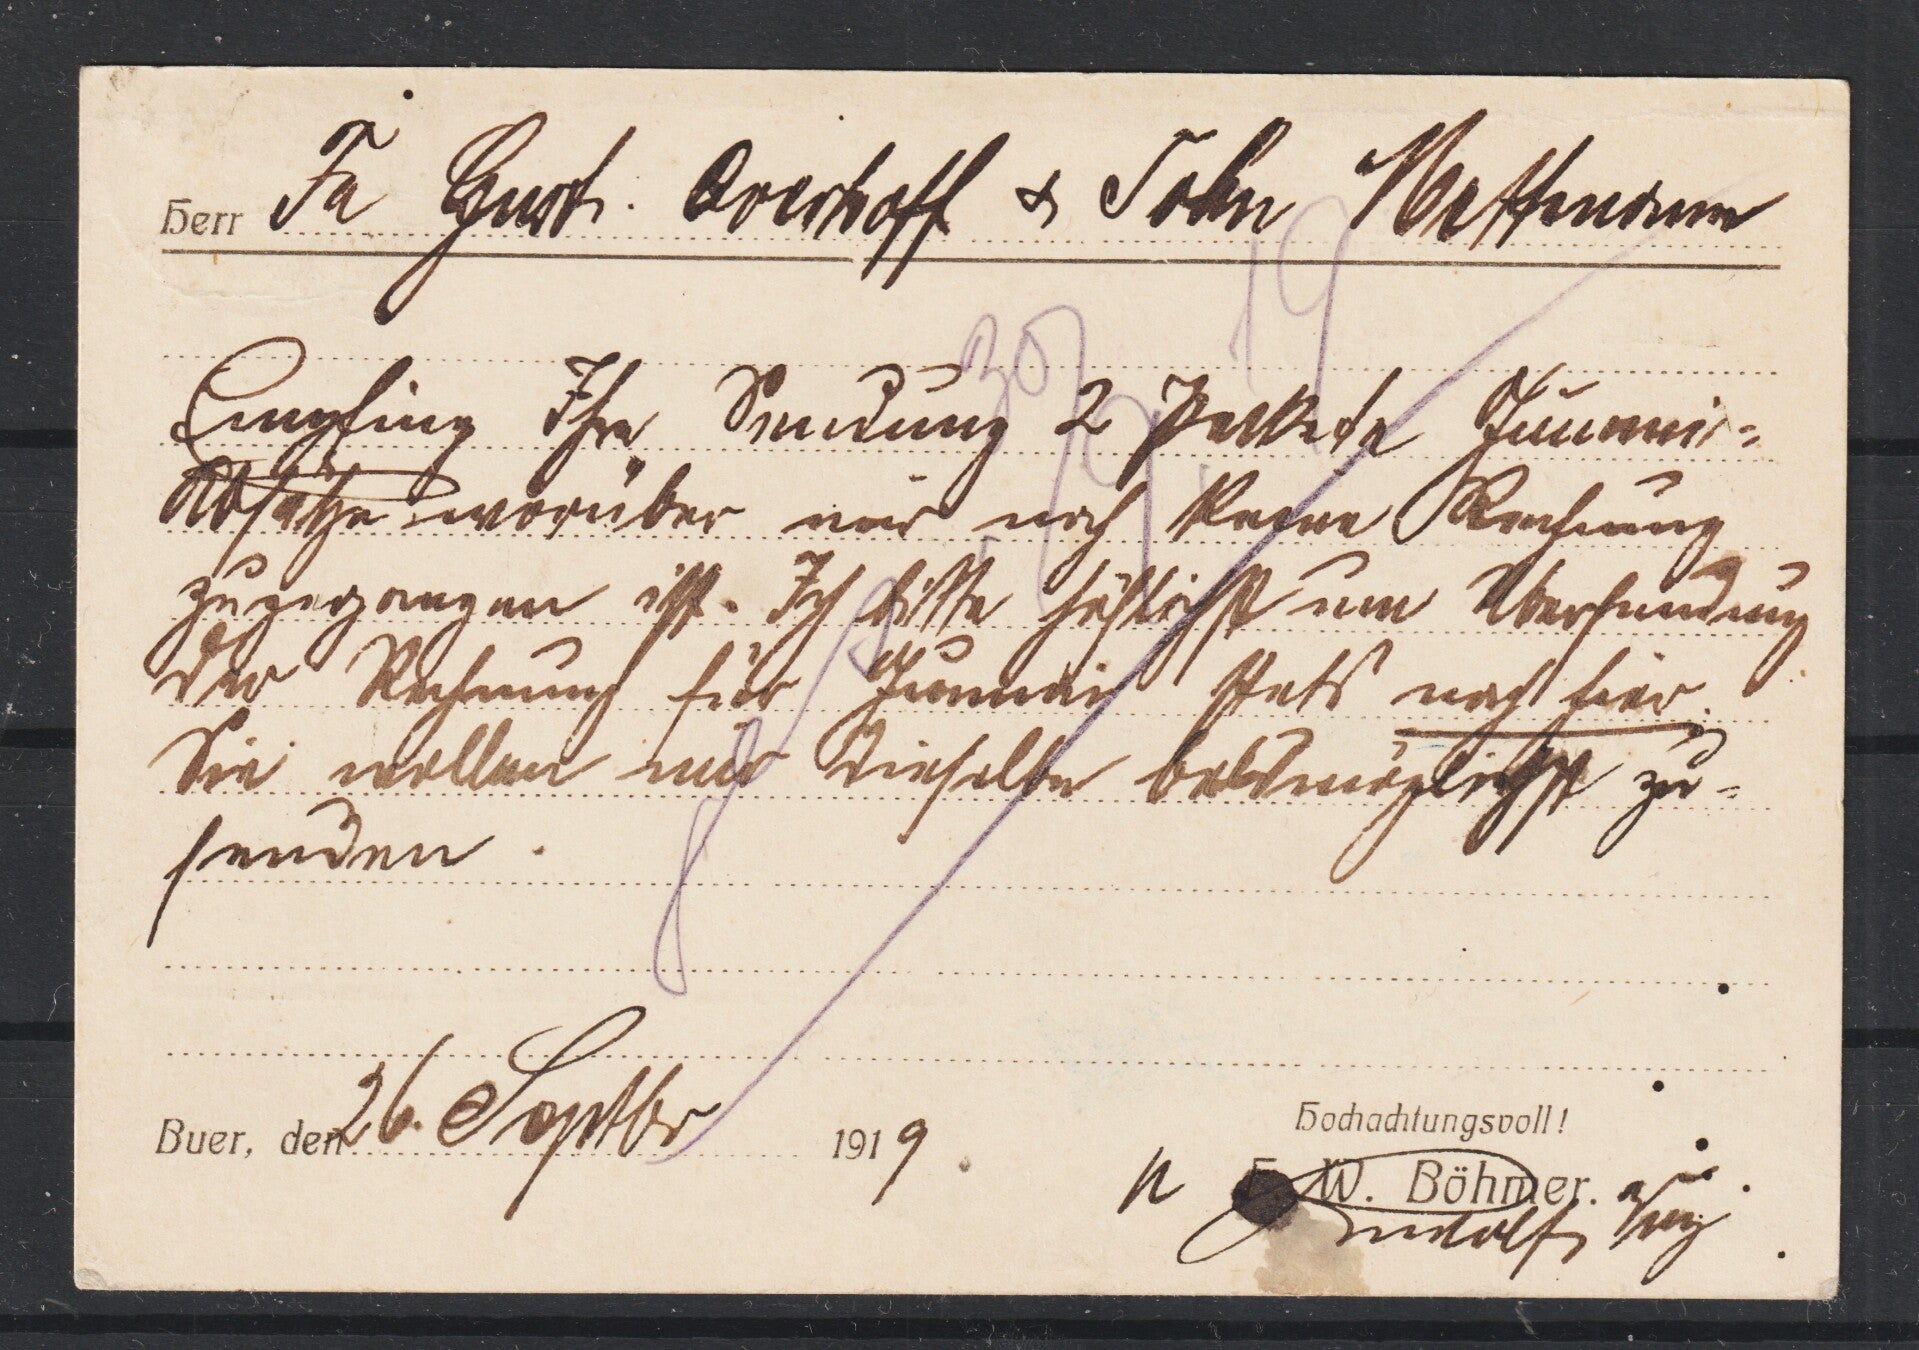 Herr Fa Gust. Overhoff & Sohn Mettmann
Empfing Ihre Sendung 2 Packete Gummi-
Absätze worüber mir noch keine Rechnung
zugegangen ist. Ich bitte höflichst um Übersendung
der Rechnung für Gummi stets nach hier.
Sie wollen mir dieselbe baldmöglichst zu-
senden.
30/9. 19
Buer, den 26. Septbr 1919
Hochachtungsvoll!
W. Böhmer.
Rudolf